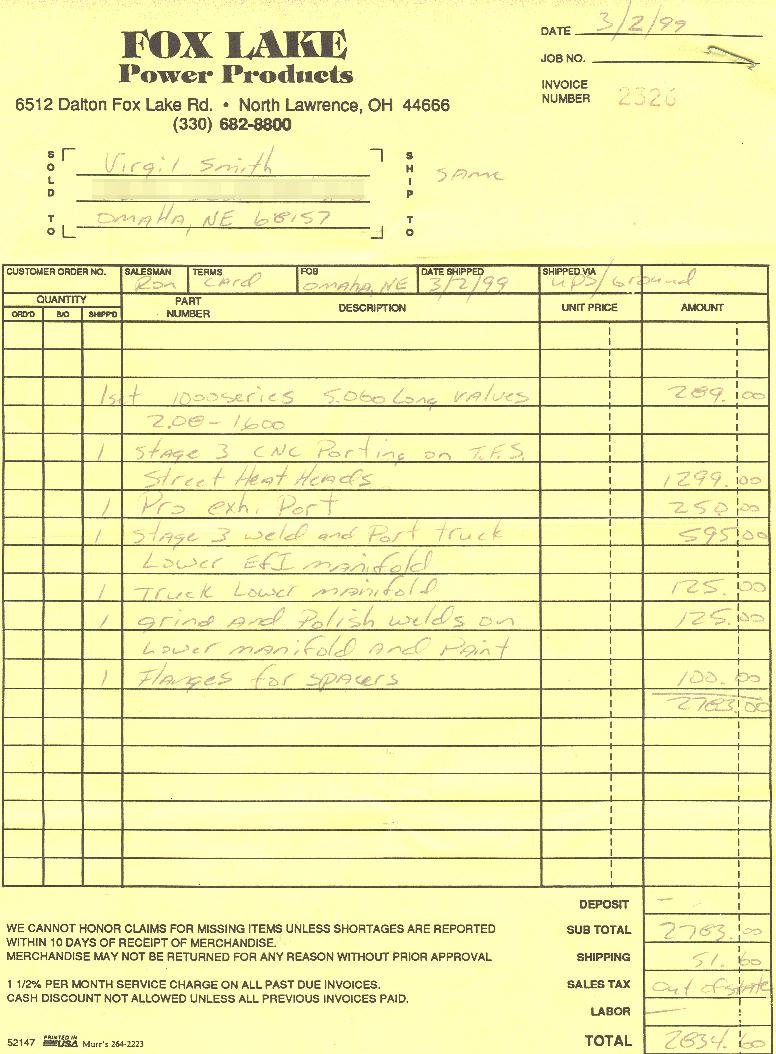 FOX LAKE
Power Products
6512 Dalton Fox Lake Rd. • North Lawrence, OH 44666
(330) 682-8800
DATE 3/2/99
JOB NO.
INVOICE NUMBER 2326
SOLD TO
Virgil Smith
OMAHA, NE 68157
SHIP TO
SAME
CUSTOMER ORDER NO. SALESMAN Ron TERMS Card FOB OMAHA, NE DATE SHIPPED 3/2/99 SHIPPED VIA UPS/Ground
QUANTITY PART NUMBER DESCRIPTION UNIT PRICE AMOUNT
ORD'D B/O SHIPP'D
1set 1000series 5.060 Long valves 289.00
2.08-1.600
1 Stage 3 CNC Porting on T.F.S.
Street Heat Heads 1299.00
1 Pro exh. Port 250.00
1 Stage 3 weld and Port truck 595.00
Lower EfI manifold
1 Truck Lower manifold 125.00
1 grind And Polish welds on 125.00
Lower manifold and Paint
1 Flanges for spacers 100.00
2783.00
DEPOSIT —
WE CANNOT HONOR CLAIMS FOR MISSING ITEMS UNLESS SHORTAGES ARE REPORTED
WITHIN 10 DAYS OF RECEIPT OF MERCHANDISE.
MERCHANDISE MAY NOT BE RETURNED FOR ANY REASON WITHOUT PRIOR APPROVAL
SUB TOTAL 2783.00
SHIPPING 51.60
1 1/2% PER MONTH SERVICE CHARGE ON ALL PAST DUE INVOICES.
CASH DISCOUNT NOT ALLOWED UNLESS ALL PREVIOUS INVOICES PAID.
SALES TAX out of state
LABOR —
TOTAL 2834.60
52147 PRINTED IN USA Murr's 264-2223